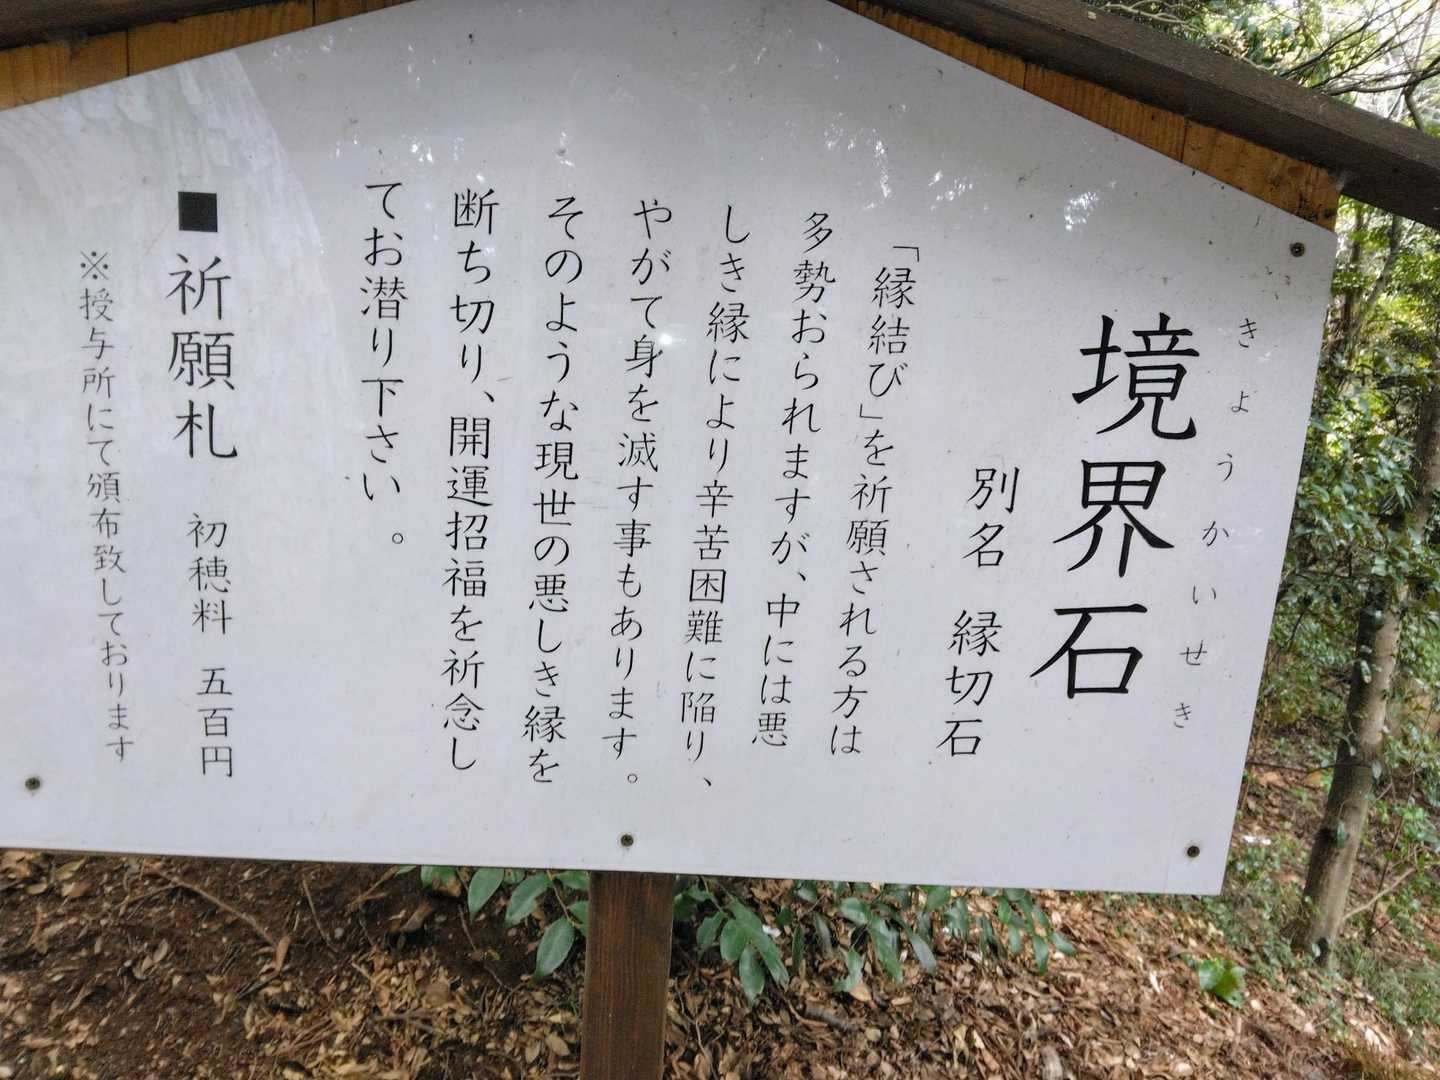 きょうかいせき
境界石
別名 縁切石
「縁結び」を祈願される方は
多勢おられますが、中には悪
しき縁により辛苦困難に陥り、
やがて身を滅す事もあります。
そのような現世の悪しき縁を
断ち切り、開運招福を祈念し
てお潜り下さい。
■祈願札 初穂料 五百円
※授与所にて頒布致しております